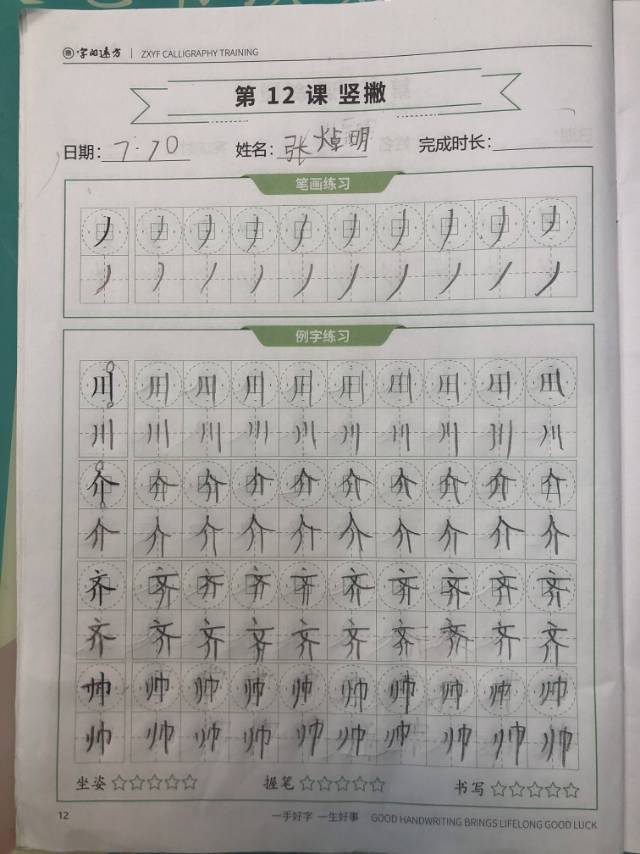 字的远方 | ZXYF CALLIGRAPHY TRAINING
第 12 课 竖撇
日期: 7·10 姓名: 张焯明 完成时长:
笔画练习
丿 丿 丿 丿 丿 丿 丿 丿 丿 丿
丿 丿 丿 丿 丿 丿 丿 丿 丿 丿
例字练习
川 川 川 川 川 川 川 川 川 川
川 川 川 川 川 川 川 川 川 川
介 介 介 介 介 介 介 介 介 介
介 介 介 介 介 介 介 介 介 介
齐 齐 齐 齐 齐 齐 齐 齐 齐 齐
齐 齐 齐 齐 齐 齐 齐 齐 齐 齐
帅 帅 帅 帅 帅 帅 帅 帅 帅 帅
帅 帅 帅 帅 帅 帅 帅 帅 帅 帅
坐姿 ☆☆☆☆☆ 握笔 ☆☆☆☆☆ 书写 ☆☆☆☆☆
12 一手好字 一生好事 GOOD HANDWRITING BRINGS LIFELONG GOOD LUCK